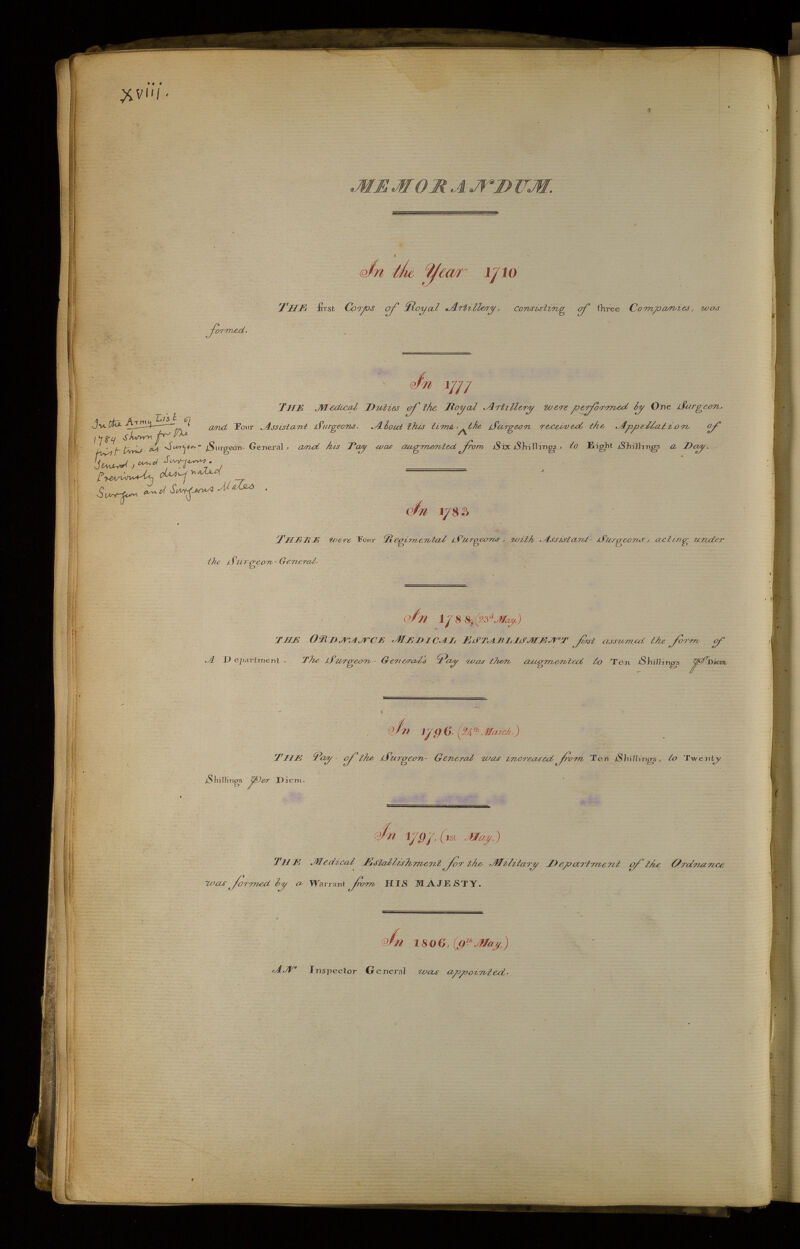 xviij.
MEMORANDUM.
In the Year 1710
THE first Corps of Royal Artillery, consisting of three Companies, was
formed.
In 1777
THE Medical Duties of the Royal Artillery were performed by One Surgeon,
and Four Assistant Surgeons. About this time ^ the Surgeon received the Appellation of
Surgeon-General, and his Pay was augmented from Six Shillings, to Eight Shillings a Day.
In the Army List of
1784 shown for the
first time as Surgeon-
General, and Surgeons.
Previously designated
Surgeon and Surgeons Mates
In 1783
THERE were Four Regimental Surgeons, with Assistant-Surgeons, acting under
the Surgeon-General.
In 1788, (23d May.)
THE ORDNANCE MEDICAL ESTABLISMENT first assumed the form of
A Department. The Surgeon-General's Pay was then augmented to Ten Shillings Per Diem.
In 1796. (24th March.)
THE Pay of the Surgeon-General was increased from Ten Shillings, to Twenty
Shillings Per Diem.
In 1797. (1st May.)
THE Medical Establishment for the Military Department of the Ordnance
was formed by a Warrant from HIS MAJESTY.
In 1806, (9th May.)
AN Inspector General was appointed.